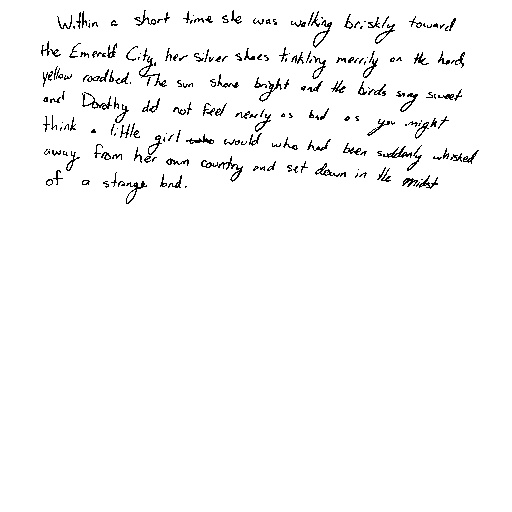 Within a short time she was walking briskly toward
the Emerald City, her silver shoes tinkling merrily on the hard,
yellow roadbed. The sun shone bright and the birds sang sweet
and Dorothy did not feel nearly as bad as you might
think a little girl who would who had been suddenly whisked
away from her own country and set down in the midst
of a strange land.